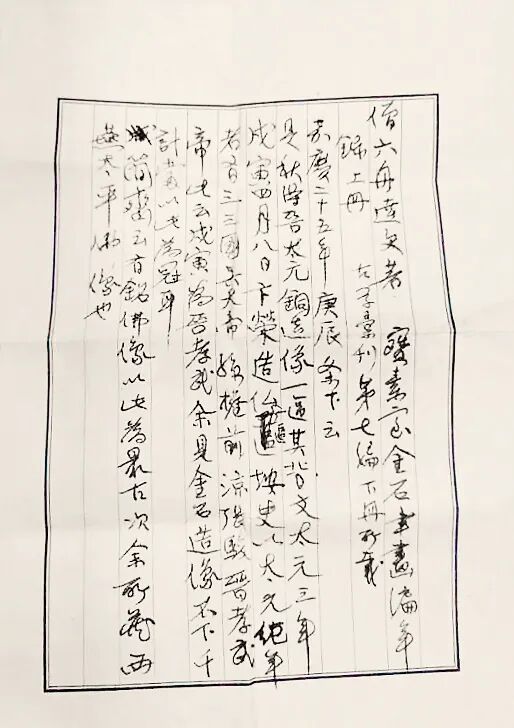 僧六舟達受著 寶素室金石書畫編年
錄上冊 古學彙刊第七編下冊所載
嘉慶二十五年庚辰条下云
是秋得晉太元銅造像一區其背文太元三年
戊寅四月八日卞榮造佛一軀按史以太元紀年
者有三三國吳大帝孫權前涼張駿晉孝武
帝此云戊寅為晉孝武余見金石造像不下千
計當以此為冠耳
簠齋云有銘佛像以此為最古次余所藏西
燕太平 像也